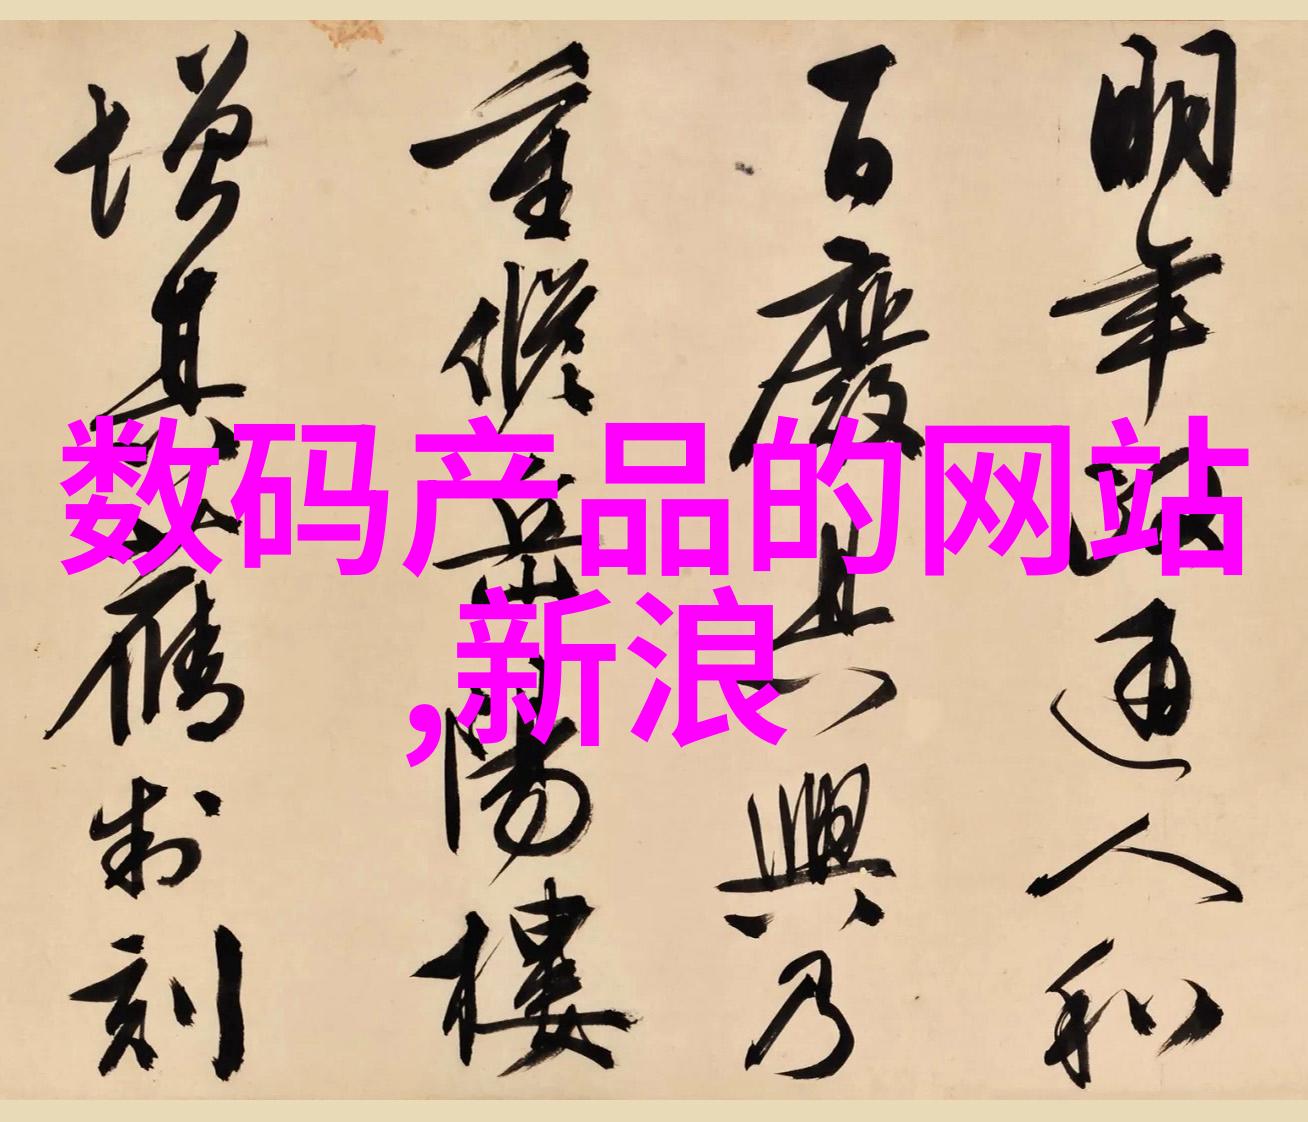 数码产品的网站
,新浪
明年政通人和
百廢具興乃
重修岳陽樓
增其制刻